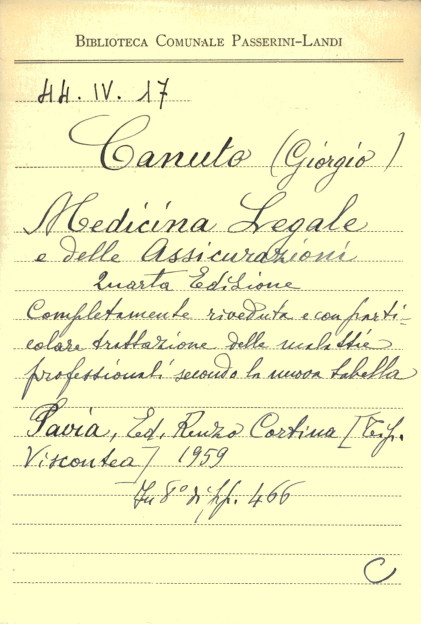 BIBLIOTECA COMUNALE PASSERINI-LANDI
44. IV. 17
Canuto (Giorgio)
Medicina Legale
e delle Assicurazioni
Quarta Edizione
Completamente riveduta e con parti-
colare trattazione delle malattie
professionali secondo la nuova tabella
Pavia, Ed. Renzo Cortina [Tip.
Viscontea] 1959
In 8° di pp. 466
C